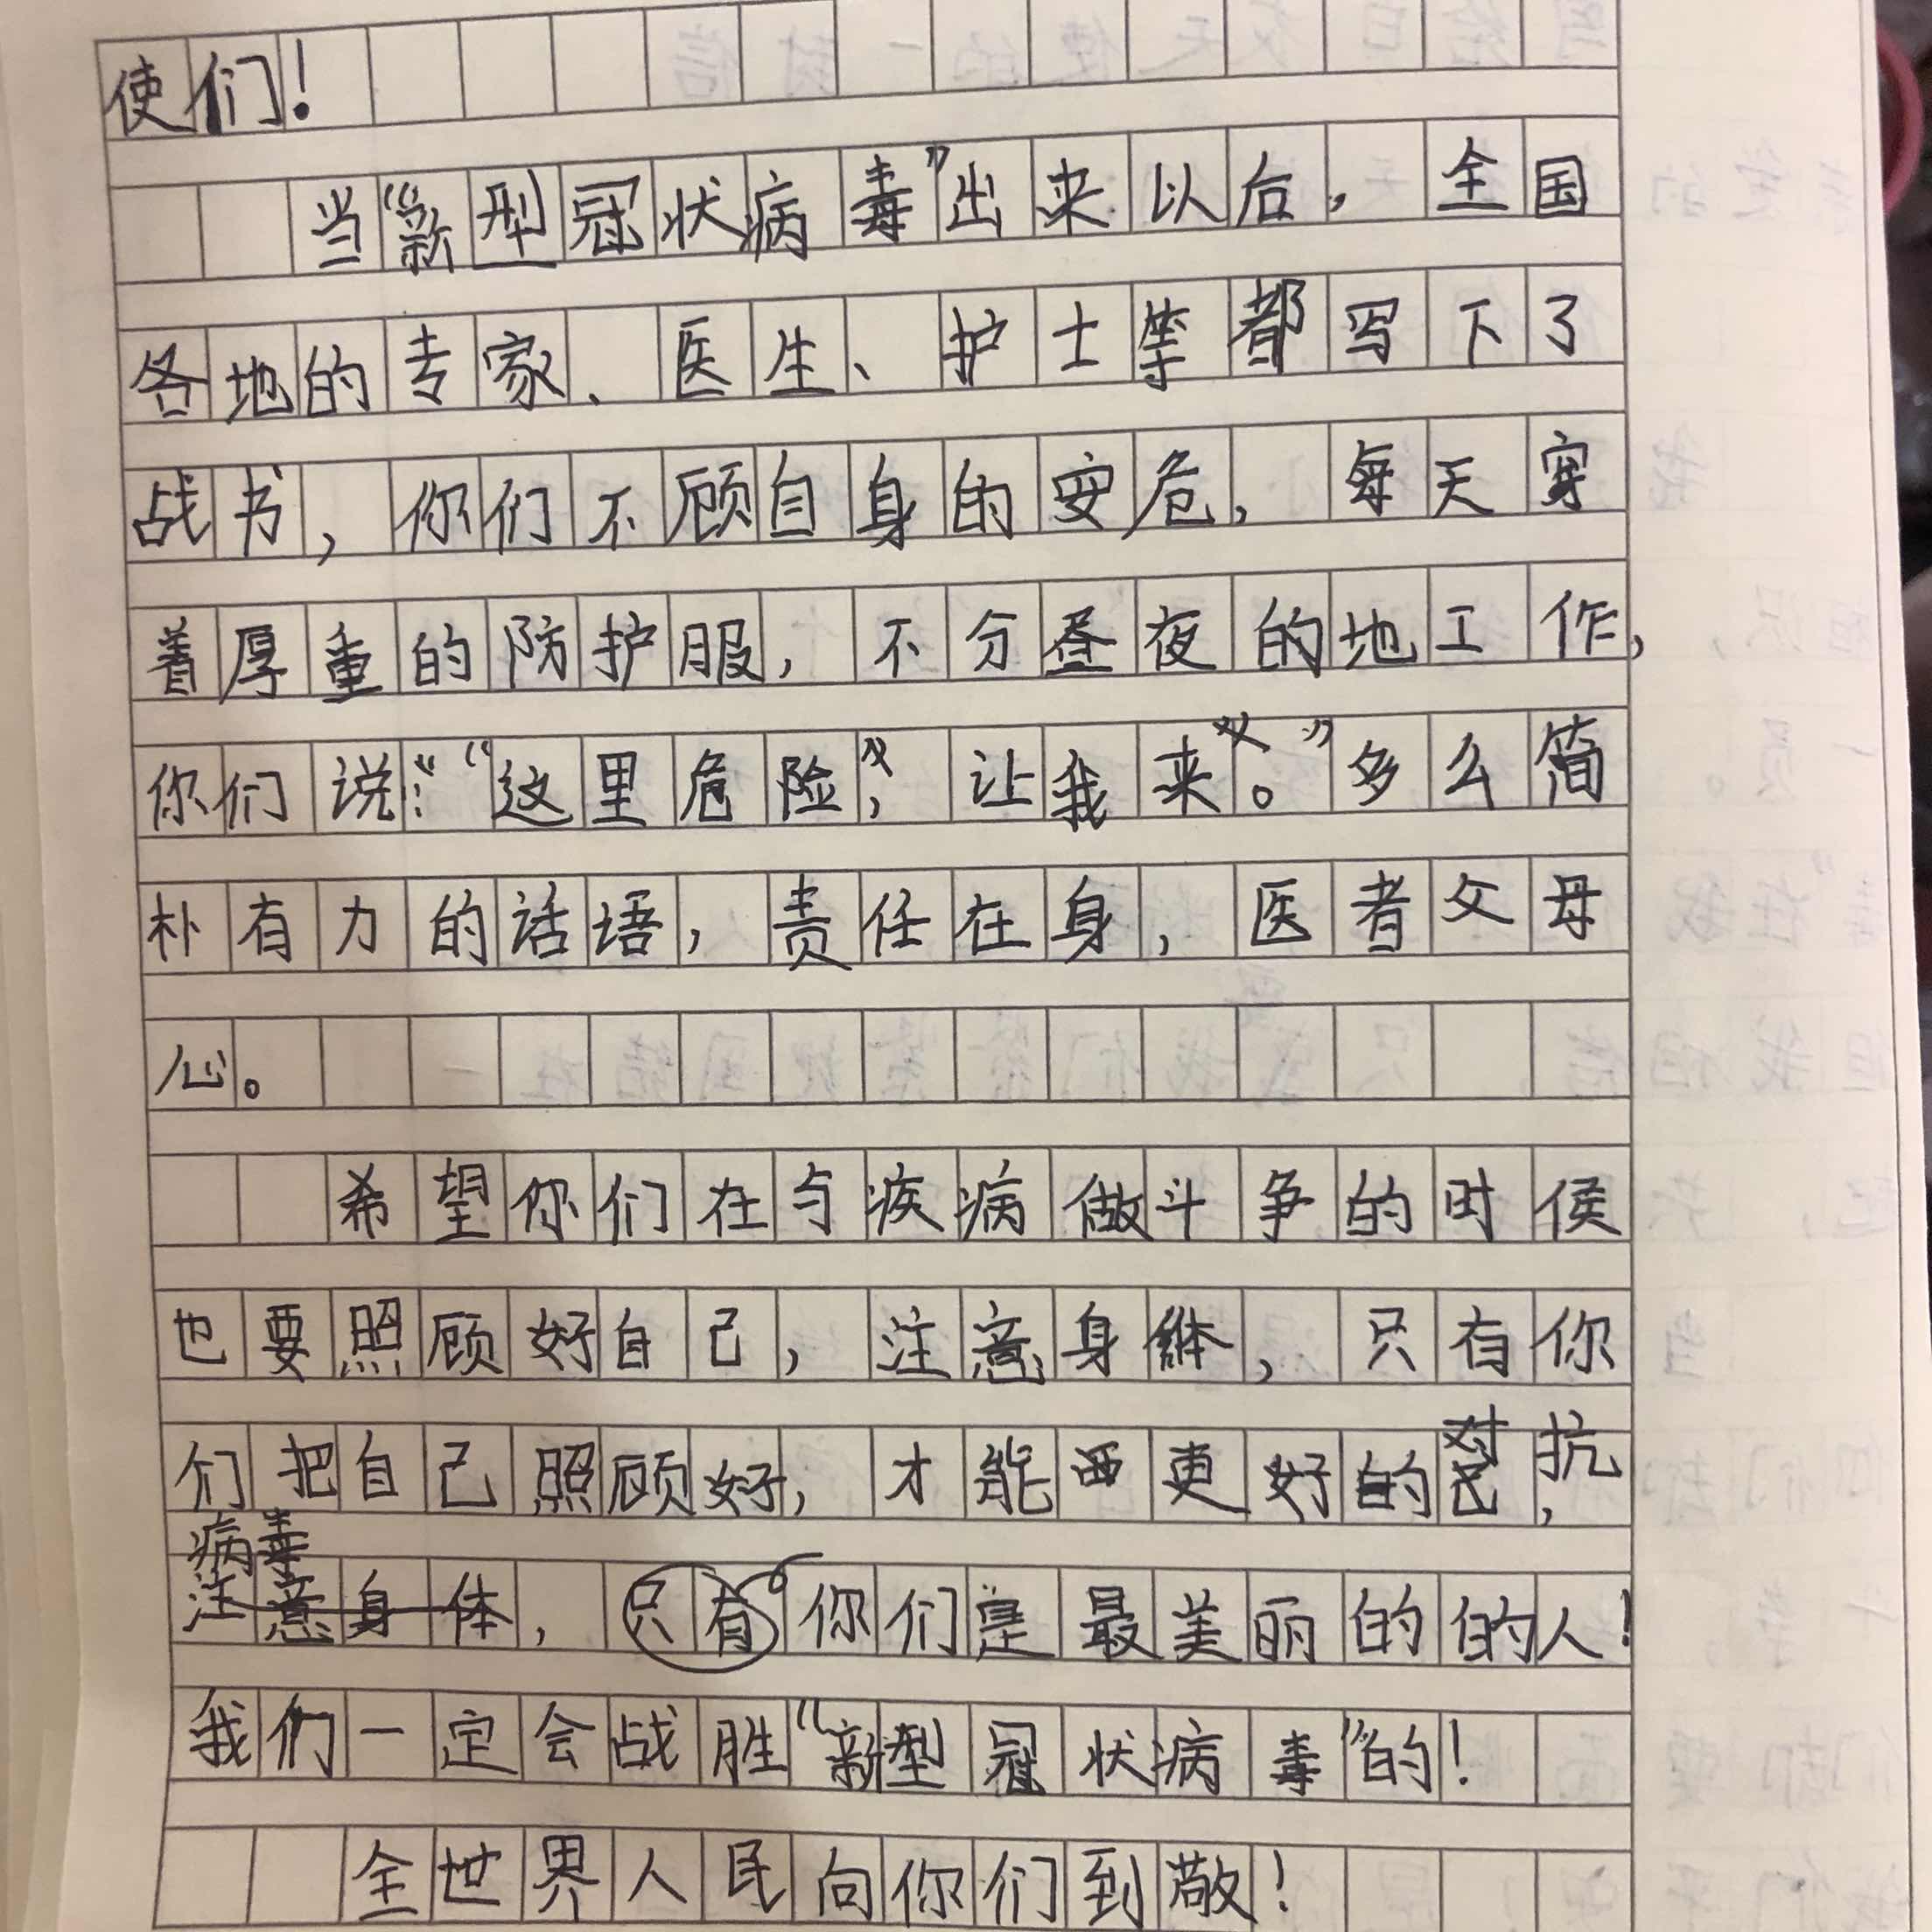 使们！
当“新型冠状病毒”出来以后，全国
各地的专家、医生、护士等都写下了
战书，你们不顾自身的安危，每天穿
着厚重的防护服，不分昼夜的地工作，
你们说：“这里危险，让我来。”多么简
朴有力的话语，责任在身，医者父母
心。
希望你们在与疾病做斗争的时侯
也要照顾好自己，注意身体，只有你
们把自己照顾好，才能更好的对抗，
病毒
注意身体，只有你们是最美丽的的人！
我们一定会战胜“新型冠状病毒”的！
全世界人民向你们到敬！